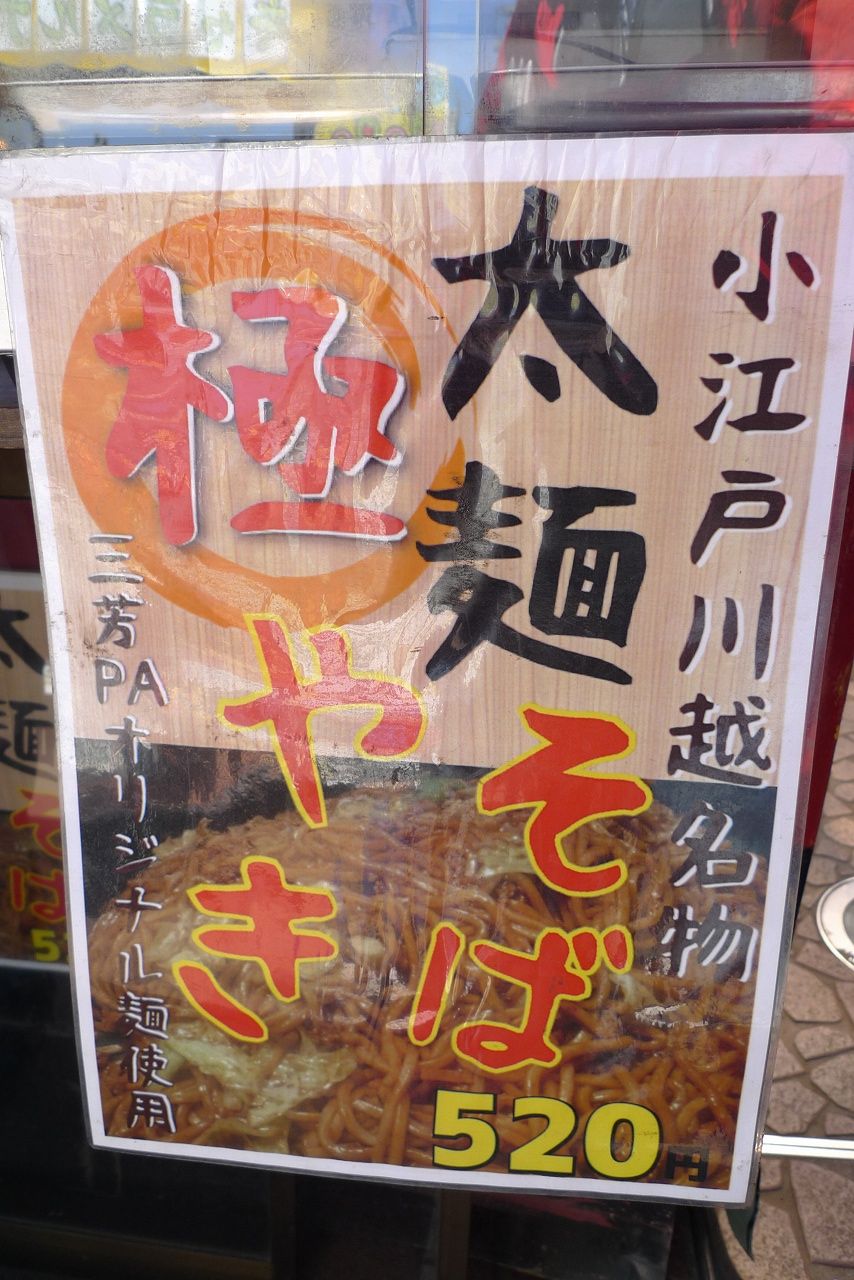 小江戸川越名物
太麺
極
やき
そば
三芳PAオリジナル麺使用
520円
太麺
そば
5